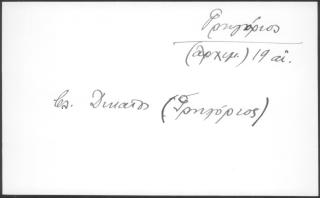 Γρηγόριος
(αρχιμ.) 19 αἰ.
βλ. Δικαῖος (Γρηγόριος)